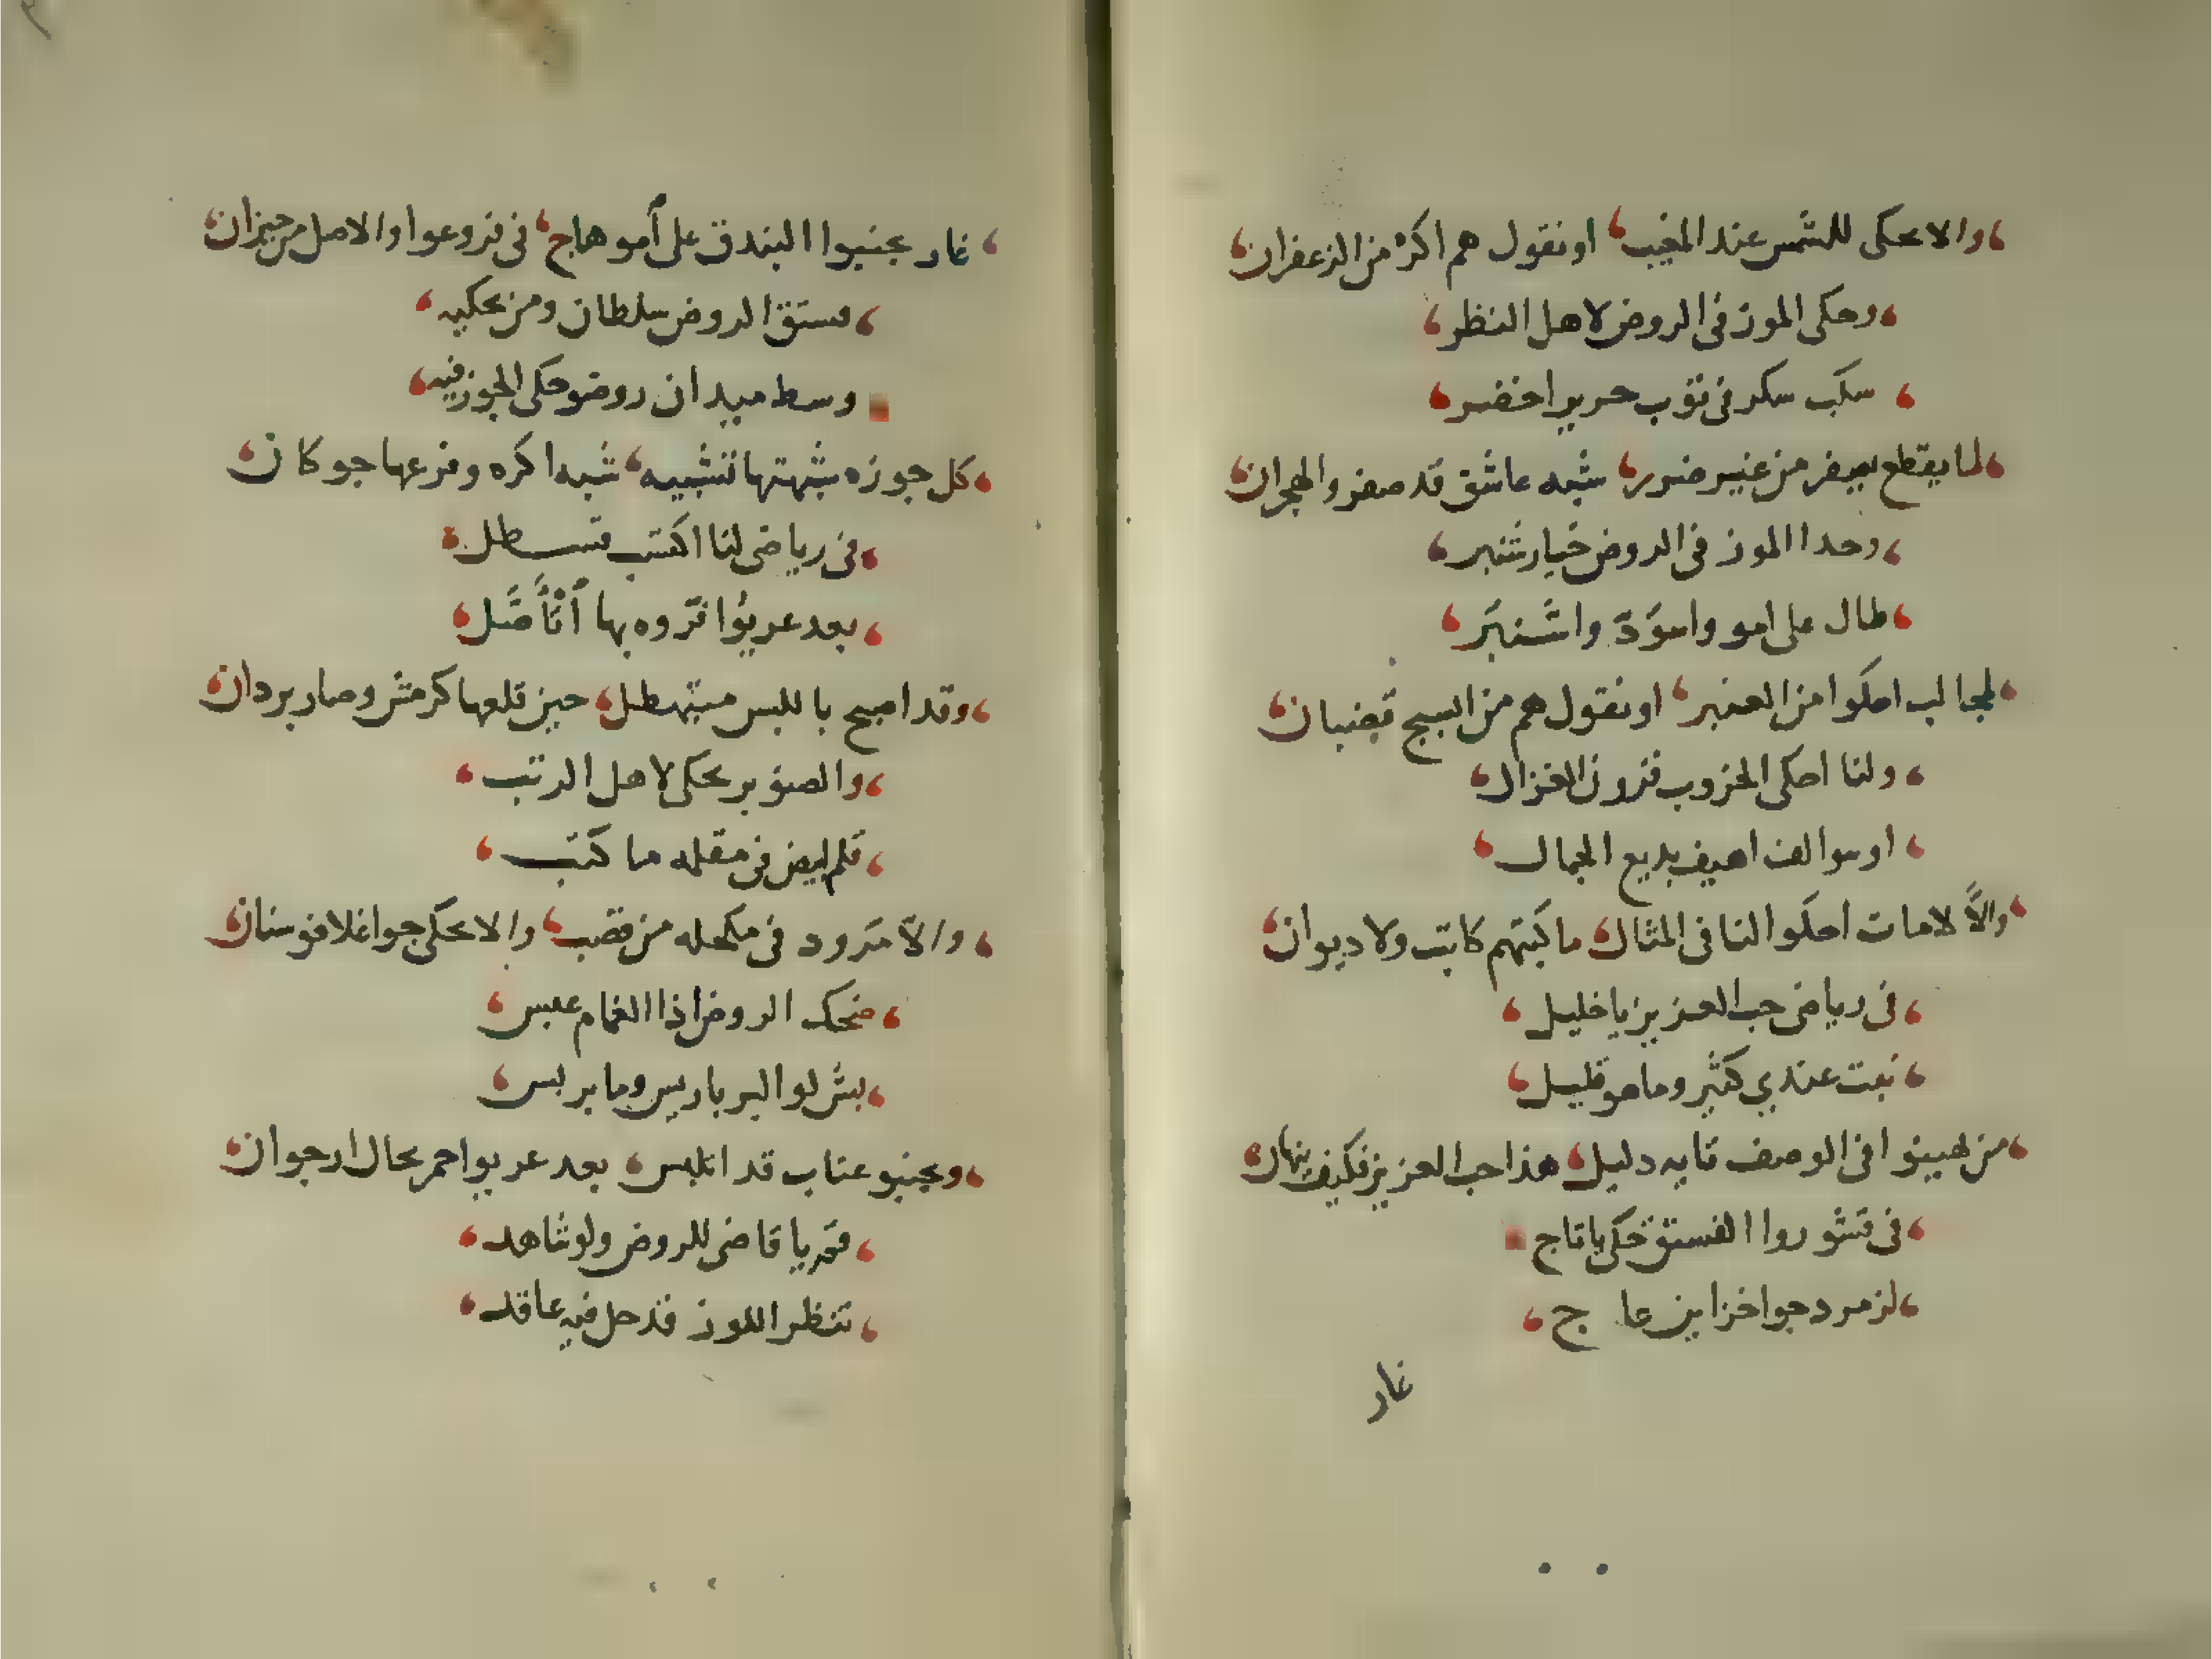 والا يحكى للشمس عند المغيب او نقول هم اكره من الزعفران
وحكى الموز فى الروض لاهل النظر
سكب سكر فى ثوب حرير اخضر
لما يقطع يصفر من غير ضرر شبه عاشق قد صفروا الهجران
وحدا الموز فى الروض خيار شنبر
طال على امو واسود واشنبر
لمجالب احكوا من العنبر او نقول هم من السبج قضبان
ولنا احكى الخروب قرون الغزال
او سوالف اهيف بديع الجمال
والا لامات احكوا لنا فى المثال ما كتبهم كاتب ولا ديوان
فى رياضى حب العزيز يا خليل
نبت عندي كثير وما هو قليل
من هيبنوا فى الوصف تابه دليل هذا حب العزيز فكيف ينهان
فى قشوروا الفستق حكى يا تاج
لزمرد جوا خزاين عاج
غار
غار بجنبوا البندق على أمو هاج فى فروعوا والاصل من خيزران
فستق الروض سلطان ومن يحكيه
وسط ميدان روضو حكى الجوز فيه
كل جوزه شبهتها تشبيه شبه اكره وفرعها جوكان
فى رياضى لنا اكتسب قسطل
بعد عريوا فروه بها اتأصل
وقد اصبح باللبس مستهطل حين قلعها كرمش وصار بردان
والصنوبر يحكى لاهل الرتب
قلم ابيض فى مقلمه ما كتب
والا مرود فى مكحله من قصب والا يحكى جوا غلافو سنان
ضحك الروض اذا الغمام عبس
بش لوا البرباريس وما بربس
وبجنبو عناب قد اتلبس بعد عريوا احمر بحال ارجوان
قم يا قاضى للروض ولو شاهد
تنظر اللوز قد حل فيه عاقد